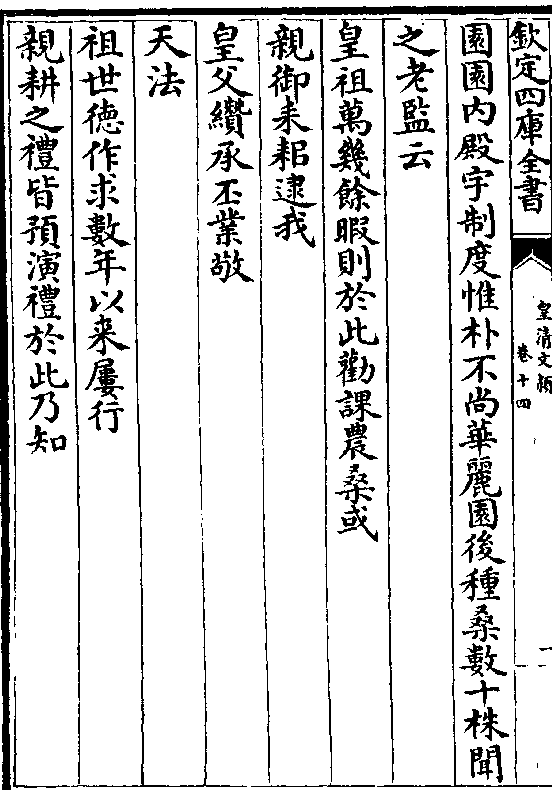 欽定四庫全書
皇清文穎
卷十四
一
園園内殿宇制度惟朴不尚華麗園後種桑數十株聞
之老監云
皇祖萬幾餘暇則於此勸課農桑或
親御耒耜逮我
皇父纘承丕業敬
天法
祖世德作求數年以來屢行
親耕之禮皆預演禮於此乃知